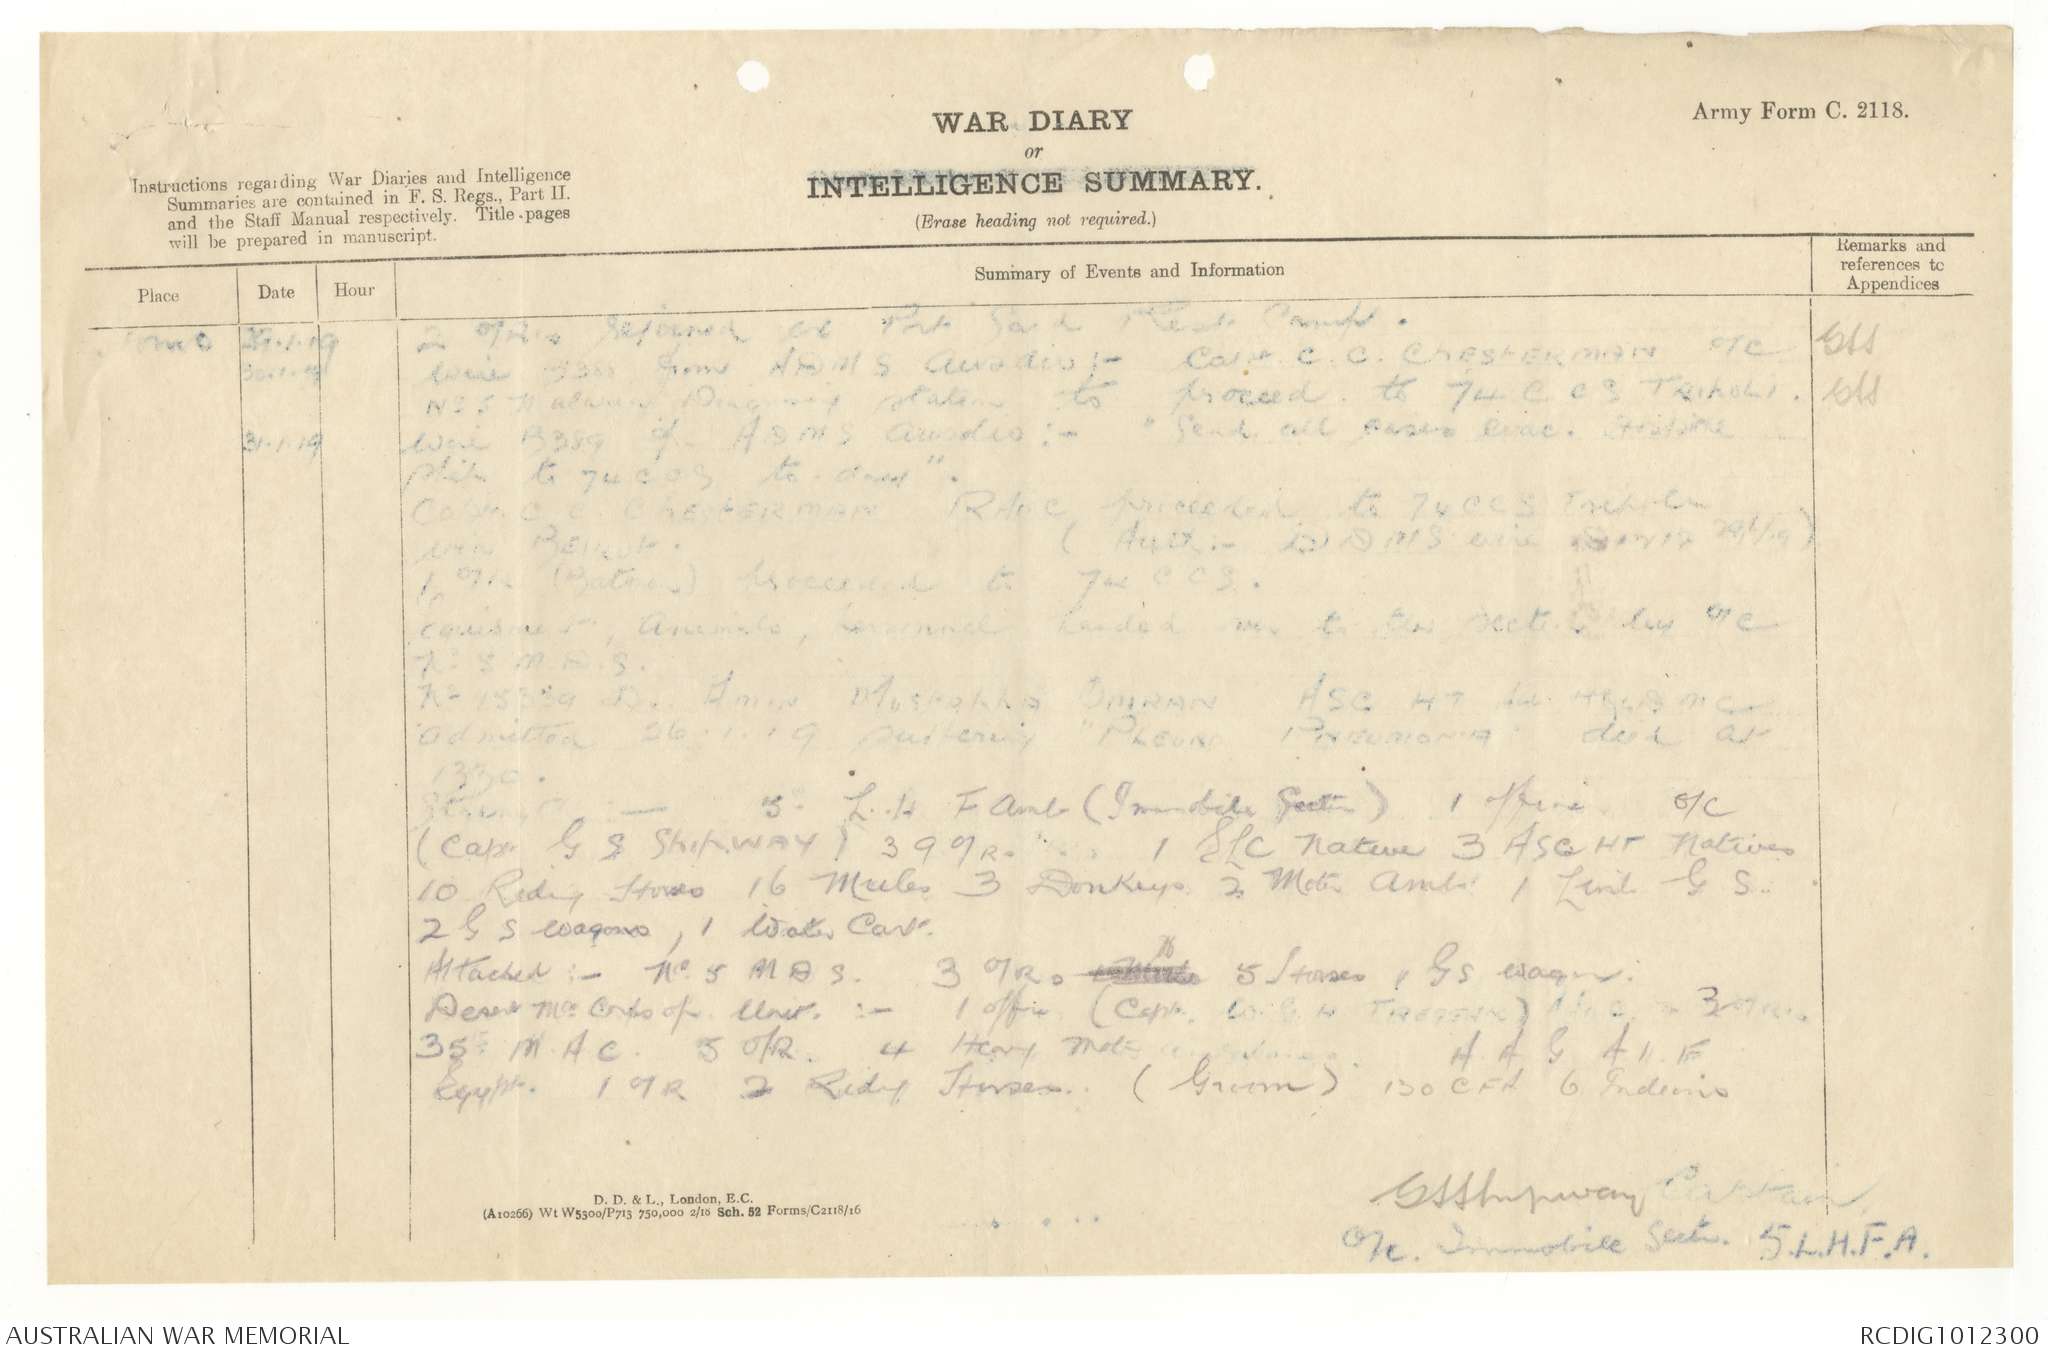 WAR DIARY
or
INTELLIGENCE SUMMARY.
(Erase heading not required.)
Army Form C. 2118.
Instructions regarding War Diaries and Intelligence
Summaries are contained in F. S. Regs., Part II.
and the Staff Manual respectively. Title pages
will be prepared in manuscript.
Place
Date
Hour
Summary of Events and Information
Remarks and
references to
Appendices
2 O/Rs rejoined ex Port Said Rest Camp. GSS
30.1.19 Wire from ADMS Ausdiv :- Capt. C. C. CHESTERMAN O/C
No 5 Malaria Diagnosis Station to proceed to 74 C C S TRIPOLI. GSS
31.1.19 Wire B389 fr ADMS Ausdiv :- "Send all cases evac.
to 74 CCS to-day".
Capt. C. C. CHESTERMAN RAMC proceeded to 74 CCS Tripoli
BEIRUT. (Auth :- DDMS wire
1 O/R (Batman) proceeded to 74 CCS.
Equipment, Animals, personnel handed over to this section by O/C
No 5 M.D.S.
No 15339 Dr. Amin OMRAN ASC HT
admitted 26.1.19 suffering "PNEUMONIA" died at
1330.
Strength :— 5 L. H F Amb (Immobile Section) 1 officer O/C
(Capt G S SHIPWAY) 39 O/R. 1 Native 3 ASC HT Natives
10 Riding Horses 16 Mules 3 Donkeys. 2 Motor Amb. 1 Limb G S.
2 G S wagons, 1 Water Cart.
Attached :- No. 5 M D S. 3 O/Rs 5 Horses 1 GS wagon.
Desert Mtd Corps Op. Unit. :- 1 officer (Capt. 3 O/Rs.
35 M.A.C. 5 O/R. 4 Heavy Motor A A G A I F
Egypt. 1 O/R 2 Riding Horses. (Groom) 130 CFA 6 Indians
GSShipway Captain,
O/c. Immobile Sectn. 5.L.H.F.A.
D. D. & L., London, E.C.
(A10266) Wt W5300/P713 750,000 2/18 Sch. 52 Forms/C2118/16
AUSTRALIAN WAR MEMORIAL
RCDIG1012300